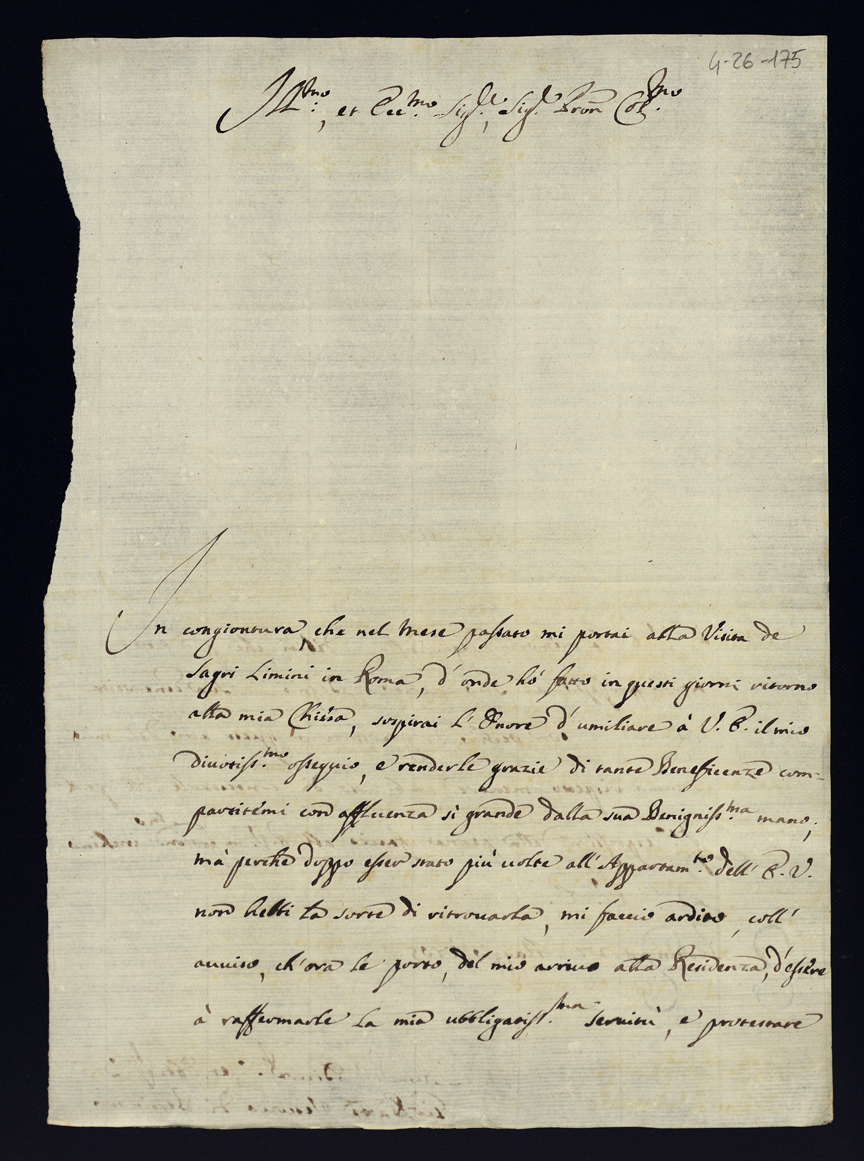 4-26-175
Ill.mo, et Ecc.mo Sig.re, Sig.re Pron Col.mo
In congiontura, che nel Mese passato mi portai alla Visita de
Sagri Limini in Roma, d'onde hò fatto in questi giorni ritorno
alla mia Chiesa, sospirai l'Onore d'umiliare à V. E. il mio
divotiss.mo ossequio, e renderle grazie di tante Beneficenze com-
partitemi con affluenza sì grande dalla sua Benigniss.ma mano;
mà perche doppo esser stato più volte all'Appartam.to dell'E. V.
non hebbi la sorte di ritrovarla, mi faccio ardito, coll'
avviso, ch'ora le porto, del mio arrivo alla Residenza, d'essere
à raffermarle la mia ubbligatiss.ma servitù, e protestare